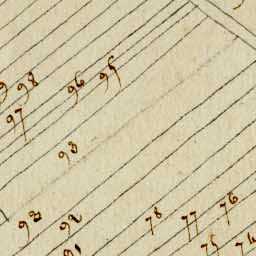 98
96
95
97
93
92
78
77
76
75
74